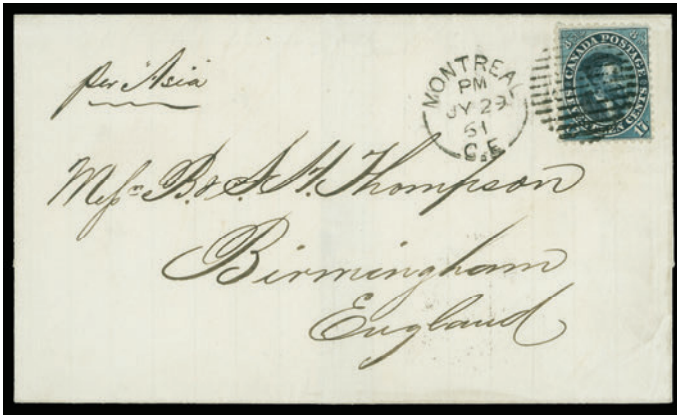 per Asia
MONTREAL
PM
JY 29
61
C.E
CANADA POSTAGE
CENTS
17
Messrs B. & S. H. Thompson
Birmingham
England